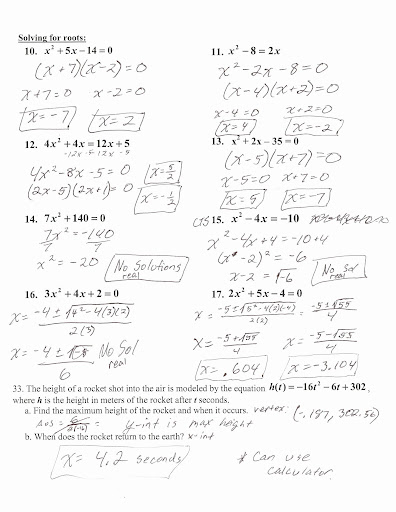 Solving for roots:
10. x² + 5x − 14 = 0
(x + 7)(x − 2) = 0
x + 7 = 0 x − 2 = 0
x = −7 x = 2
11. x² − 8 = 2x
x² − 2x − 8 = 0
(x − 4)(x + 2) = 0
x − 4 = 0 x + 2 = 0
x = 4 x = −2
12. 4x² + 4x = 12x + 5
−12x −5 −12x −5
4x² − 8x − 5 = 0 x = 5/2
(2x − 5)(2x + 1) = 0 x = −1/2
13. x² + 2x − 35 = 0
(x − 5)(x + 7) = 0
x − 5 = 0 x + 7 = 0
x = 5 x = −7
14. 7x² + 140 = 0
7x²/7 = −140/7
x² = −20 No Solutions
real
CTS 15. x² − 4x = −10
x² − 4x + 4 = −10 + 4
(x − 2)² = −6
x − 2 = √−6 No Sol
real
16. 3x² + 4x + 2 = 0
x = (−4 ± √(4² − 4(3)(2)))/2(3)
x = (−4 ± √−8)/6 No Sol
real
17. 2x² + 5x − 4 = 0
x = (−5 ± √(5² − 4(2)(−4)))/2(2) = (−5 ± √55)/4
x = (−5 + √55)/4 x = (−5 − √55)/4
x = .604 x = −3.104
33. The height of a rocket shot into the air is modeled by the equation h(t) = −16t² − 6t + 302,
where h is the height in meters of the rocket after t seconds.
a. Find the maximum height of the rocket and when it occurs. vertex: (−.187, 302.56)
AOS = 6/2(−16) = y-int is max height
b. When does the rocket return to the earth? x-int
x = 4.2 seconds
* Can use
calculator